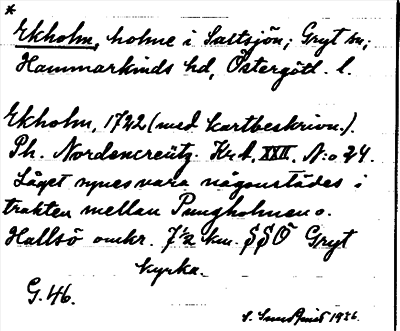 *
Ekholm, holme i Saltsjön; Gryt sn;
Hammarkinds hd, Östergötl. l.
Ekholm, 1722 (med kartbeskrivn.).
Ph. Nordencreütz. Kr. A, XXII, N:o 24.
Läget synes vara någonstädes i
trakten mellan Pungholmen o.
Hallsö omkr. 7½ km. SSÖ Gryt
kyrka.
G. 46.
S. 1936.